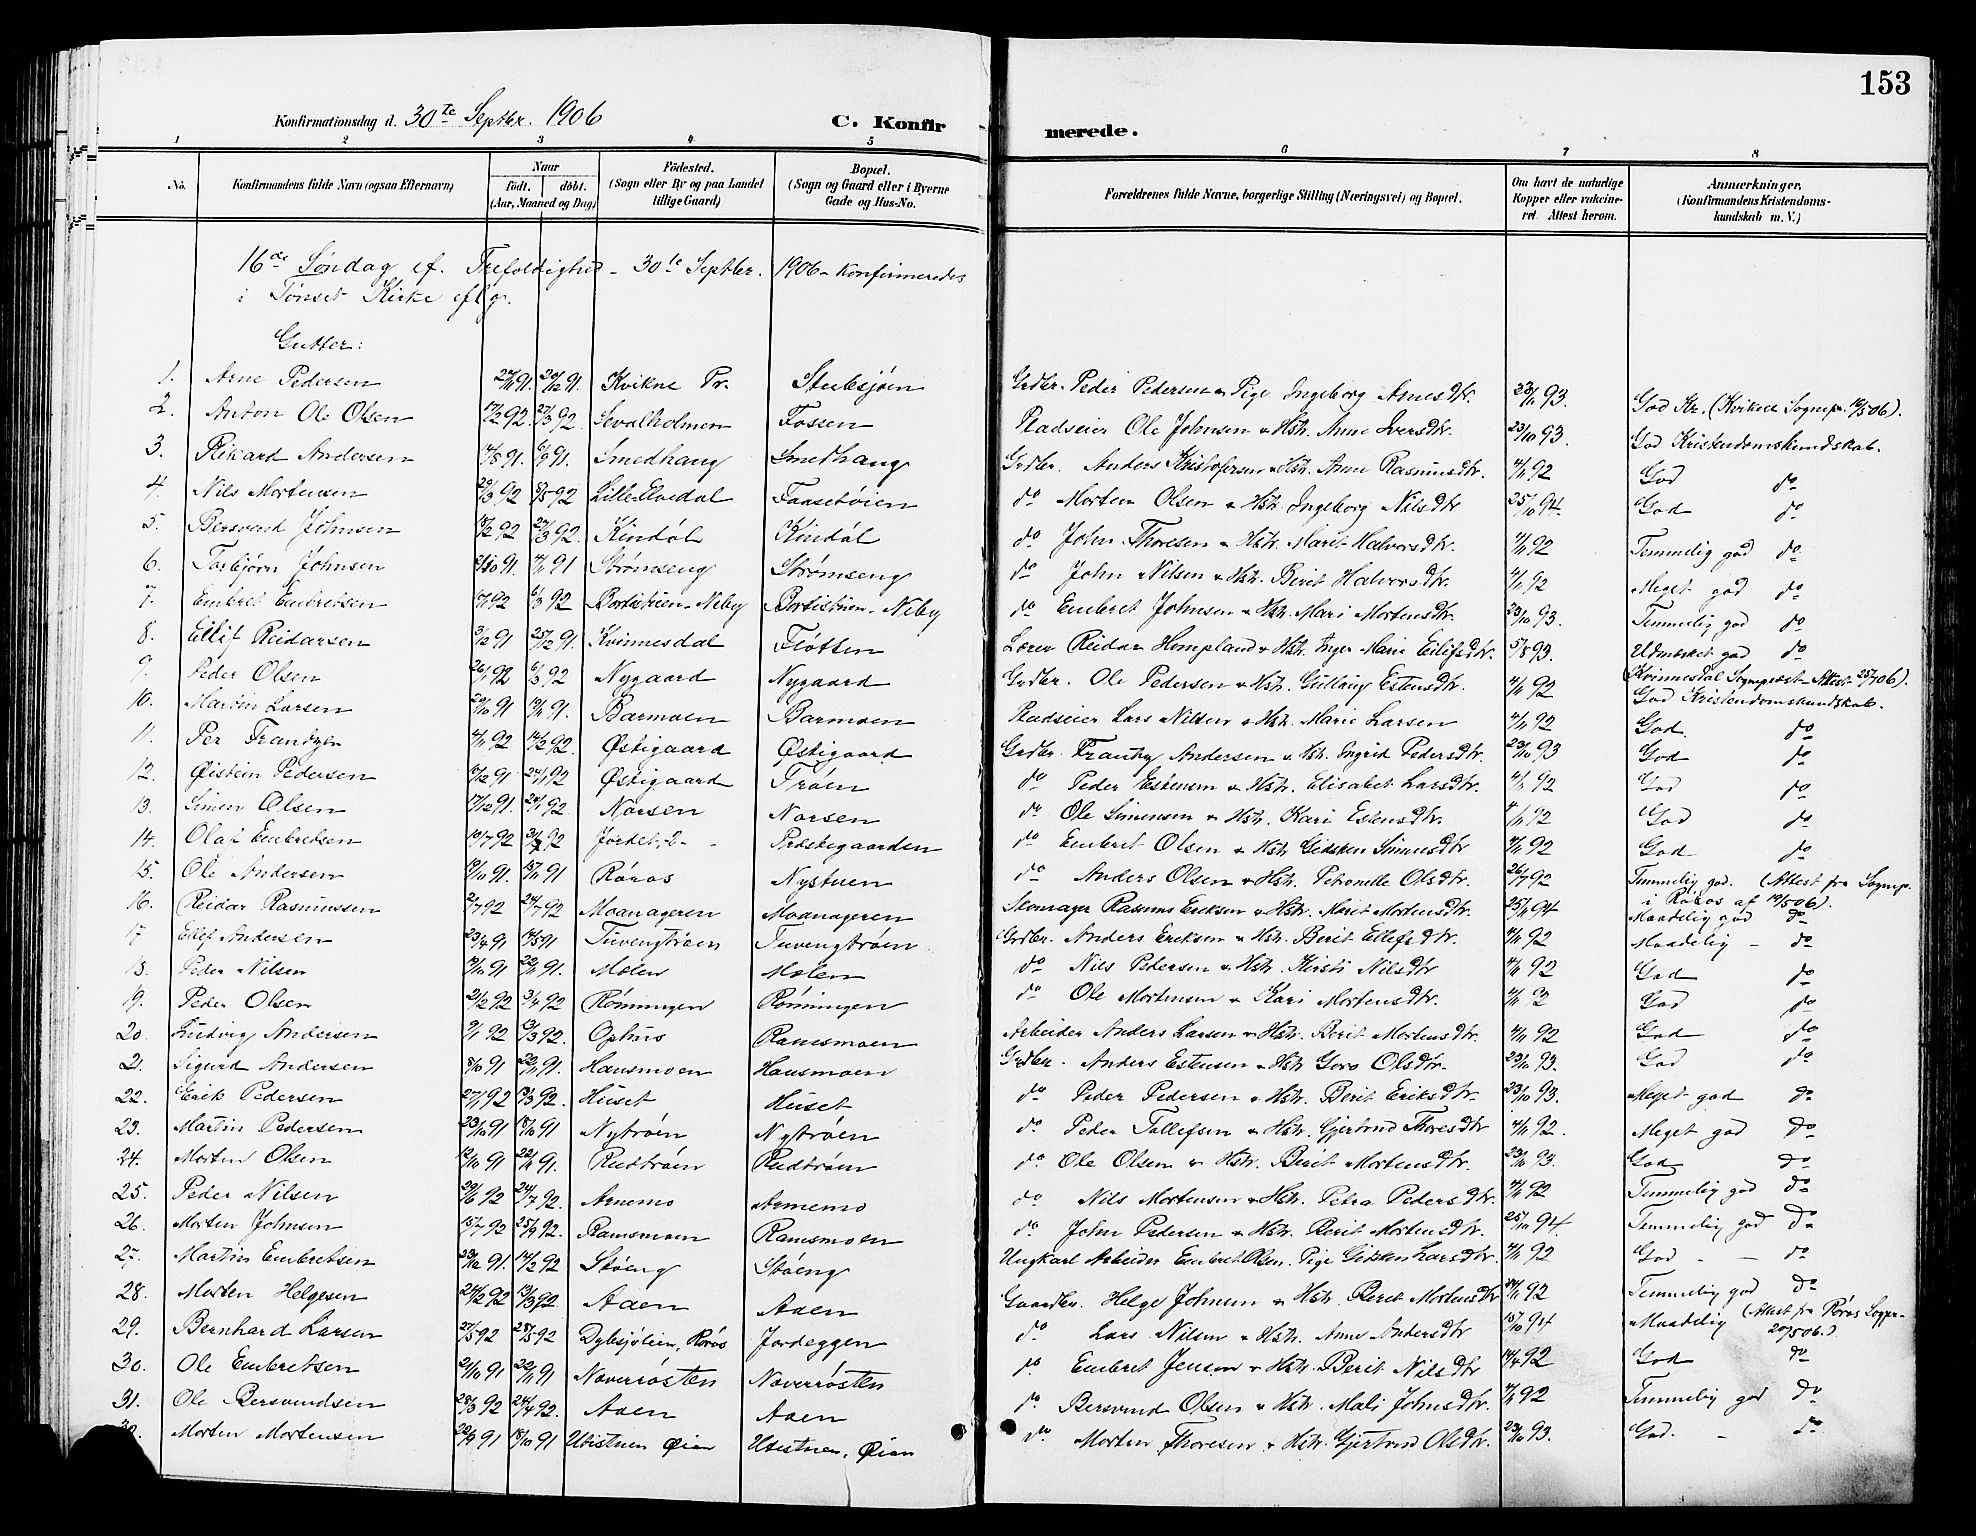 153
Konfirmationsdag d. 30te Septbr. 1906 C. Konfirmerede.
1 2 3 4 5 6 7 8
No. Konfirmandens fulde Navn (ogsaa Efternavn) Naar født. døbt. (Aar, Maaned og Dag) Fødested. (Sogn eller By og paa Landet tillige Gaard) Bopæl. (Sogn og Gaard eller i Byerne Gade og Hus-No. Forældrenes fulde Navne, borgerlige Stilling (Næringsvei) og Bopæl. Om havt de naturlige Kopper eller vakcineret. Attest herom. Anmærkninger. (Konfirmandens Kristendomskundskab m. V.)
16de Søndag ef. Trefoldighed - 30te Septbr. 1906 - Konfirmeredes
i Tønset Kirke eflg.
Gutter:
1. Arne Pedersen 91. 91. Kvikne Pr. Stubsjøen Grdbr. Peder Pedersen & Pige Ingeborg Arnesdtr. 93. God Kr. (Kvikne Sognepr. 06).
2. Anton Ole Olsen 17/2 92. 27/3 92. Sevalholmen Fossen Pladseier Ole Johnsen & Hstr. Anne Iversdtr. 23/10 93. God Kristendomskundskab.
3. Rikard Andersen 91. 6/9 91. Smedhaug Smedhaug Grdbr. Anders Kristofersen & Hstr. Anne Rasmusdtr. 4/11 92 God do
4. Nils Mortensen 29/3 92 8/5 92 Lille Elvedal Faasetøien do Morten Olsen & Hstr. Ingeborg Nilsdtr 25/10 94. God do
5. Bersvend Johnsen 18/2 92 27/3 92. Kindøl Kindøl do John Thoresen & Hstr. Marit Halvorsdtr. 4/11 92 Temmelig god do
6. Torbjørn Johnsen 91. 91 Strømseng Strømseng do John Nilsen & Hstr. Berit Halvorsdtr. 4/11 92 Meget god do
7. Embret Embretsen 92 6/3 92 Portistuen-Neby Portistuen-Neby do Embret Johnsen & Hstr. Mari Mortensdtr. 23/10 93. Temmelig god do
8. Eilif Reidarsen 3/12 91 25/12 91. Kvinnesdal Fløtten Lærer Reidar Hompland & Hstr. Inger Marie Eilifsdtr. 5/8 93. Udmærket god do
9. Peder Olsen 26/1 92 6/3 92 Nygaard Nygaard Grdbr. Ole Pedersen & Hstr. Gullaug Estensdtr. 4/11 92 (Kvinnesdal Sogneprest Attest 25/7 06).
10. Martin Larsen 91 91. Barmoen Barmoen Pladseier Lars Nilsen & Hstr. Marie Larsen 4/11 92 God Kristendomskundskab.
11. Per Frantzen 92 14/2 92. Østigaard Østigaard Grdbr. Frantz Andersen & Hstr. Ingrid Pedersdtr. 23/10 93 God do
12. Øistein Pedersen 91 24/1 92 Østigaard Trøen do Peder Estensen & Hstr. Elisabet Larsdtr. 4/11 92 God do
13. Simen Olsen 17/12 91. 24/1 92 Norsen Norsen do Ole Simensen & Hstr. Kari Estensdtr. 4/11 92 God do
14. Olaf Embretsen 92 92 Jordet, 2 Prestegaarden do Embret Olsen & Hstr Gidsken Simensdtr 4/11 92 God do
15. Ole Andersen 19/10 91. 15/11 91 Røros Nystuen do Anders Olsen & Hstr. Petronelle Olsdtr. 26/7 92 Temmelig god. (Attest fra Sognepr.
16. Reidar Rasmussen 92 24/7 92 Moanageren Moanageren Skomager Rasmus Eriksen & Hstr. Marit Mortensdtr. 94 i Røros af 06). Maadelig god do
17. Ellef Andersen 23/4 91 91 Tuvengtrøen Tuvengtrøen Grdbr. Anders Eriksen & Hstr. Berit Ellefsdtr. 4/11 92 Maadelig - do
18. Peder Nilsen 19/10 91 22/11 91. Mælen Mælen do Nils Pedersen & Hstr. Kirsti Nilsdtr 4/11 92 God do
19. Peder Olsen 21/2 92 3/4 92 Rønningen Rønningen do Ole Mortensen & Kari Mortensdtr. 4/11 92 God do
20. Ludvig Andersen 9/1 92 13/3 92. Ophus Ramsmoen Arbeider Anders Larsen & Hstr. Berit Mortensdtr. 4/11 92 God do
21. Sigurd Andersen 8/10 91 22/11 91. Hansmoen Hansmoen Grdbr. Anders Estensen & Hstr Goro Olsdtr. 23/10 93. God do
22. Erik Pedersen 27/1 92 13/3 92. Huset Huset do Peder Pedersen & Hstr. Berit Eriksdtr. 23/10 93. Meget god do
23. Martin Pedersen 91 18/10 91 Nytrøen Nytrøen do Peder Tollefsen & Hstr. Gjertrud Thoresdtr 4/11 92. Meget god do
24. Morten Olsen 12/10 91 22/11 91. Rudtrøen Rudtrøen do Ole Olsen & Hstr. Berit Mortensdtr. 23/10 93. God do
25. Peder Nilsen 29/6 92 24/7 92. Arnemo Arnemo do Nils Mortensen & Hstr. Petra Pedersdtr. 4/11 92 Temmelig god do
26. Morten Johnsen 15/7 92 25/9 92. Ramsmoen Ramsmoen do John Pedersen & Hstr. Berit Mortensdtr. 25/10 94. Temmelig god do
27. Martin Embretsen 23/12 91. 14/2 92 Støeng Støeng Ungkarl Arbeider Embret Olsen. Pige Gidsken Larsdtr. 4/11 92 God - do
28. Morten Helgesen 24/2 92 13/3 92. Aaen Aaen Gaardbr. Helge Johnsen & Hstr. Berit Mortensdtr 92 Temmelig god do
29. Bernhard Larsen 27/3 92 92 Dybsjølien, Røros Jordeggen do Lars Nilsen & Hstr. Anne Andersdtr 15/10 94 Maadelig (Attest fra Røros Sogpr. 06.)
30. Ole Embretsen 21/10 91 22/11 91 Noverrøsten Noverrøsten do Embret Jensen & Hstr. Berit Nilsdtr 14/4 92 God do
31. Ole Bersvendsen 23/3 92 24/4 92. Aaen Aaen do Bersvend Olsen & Hstr. Mali Johnsdtr. 4/11 92 Temmelig god do
Morten Mortensen 22/9 91 18/10 91 Utistuen Øian Utistuen, Øian do Morten Thoresen & Hstr. Gjertrud Olsdtr. 23/10 93. God. - do